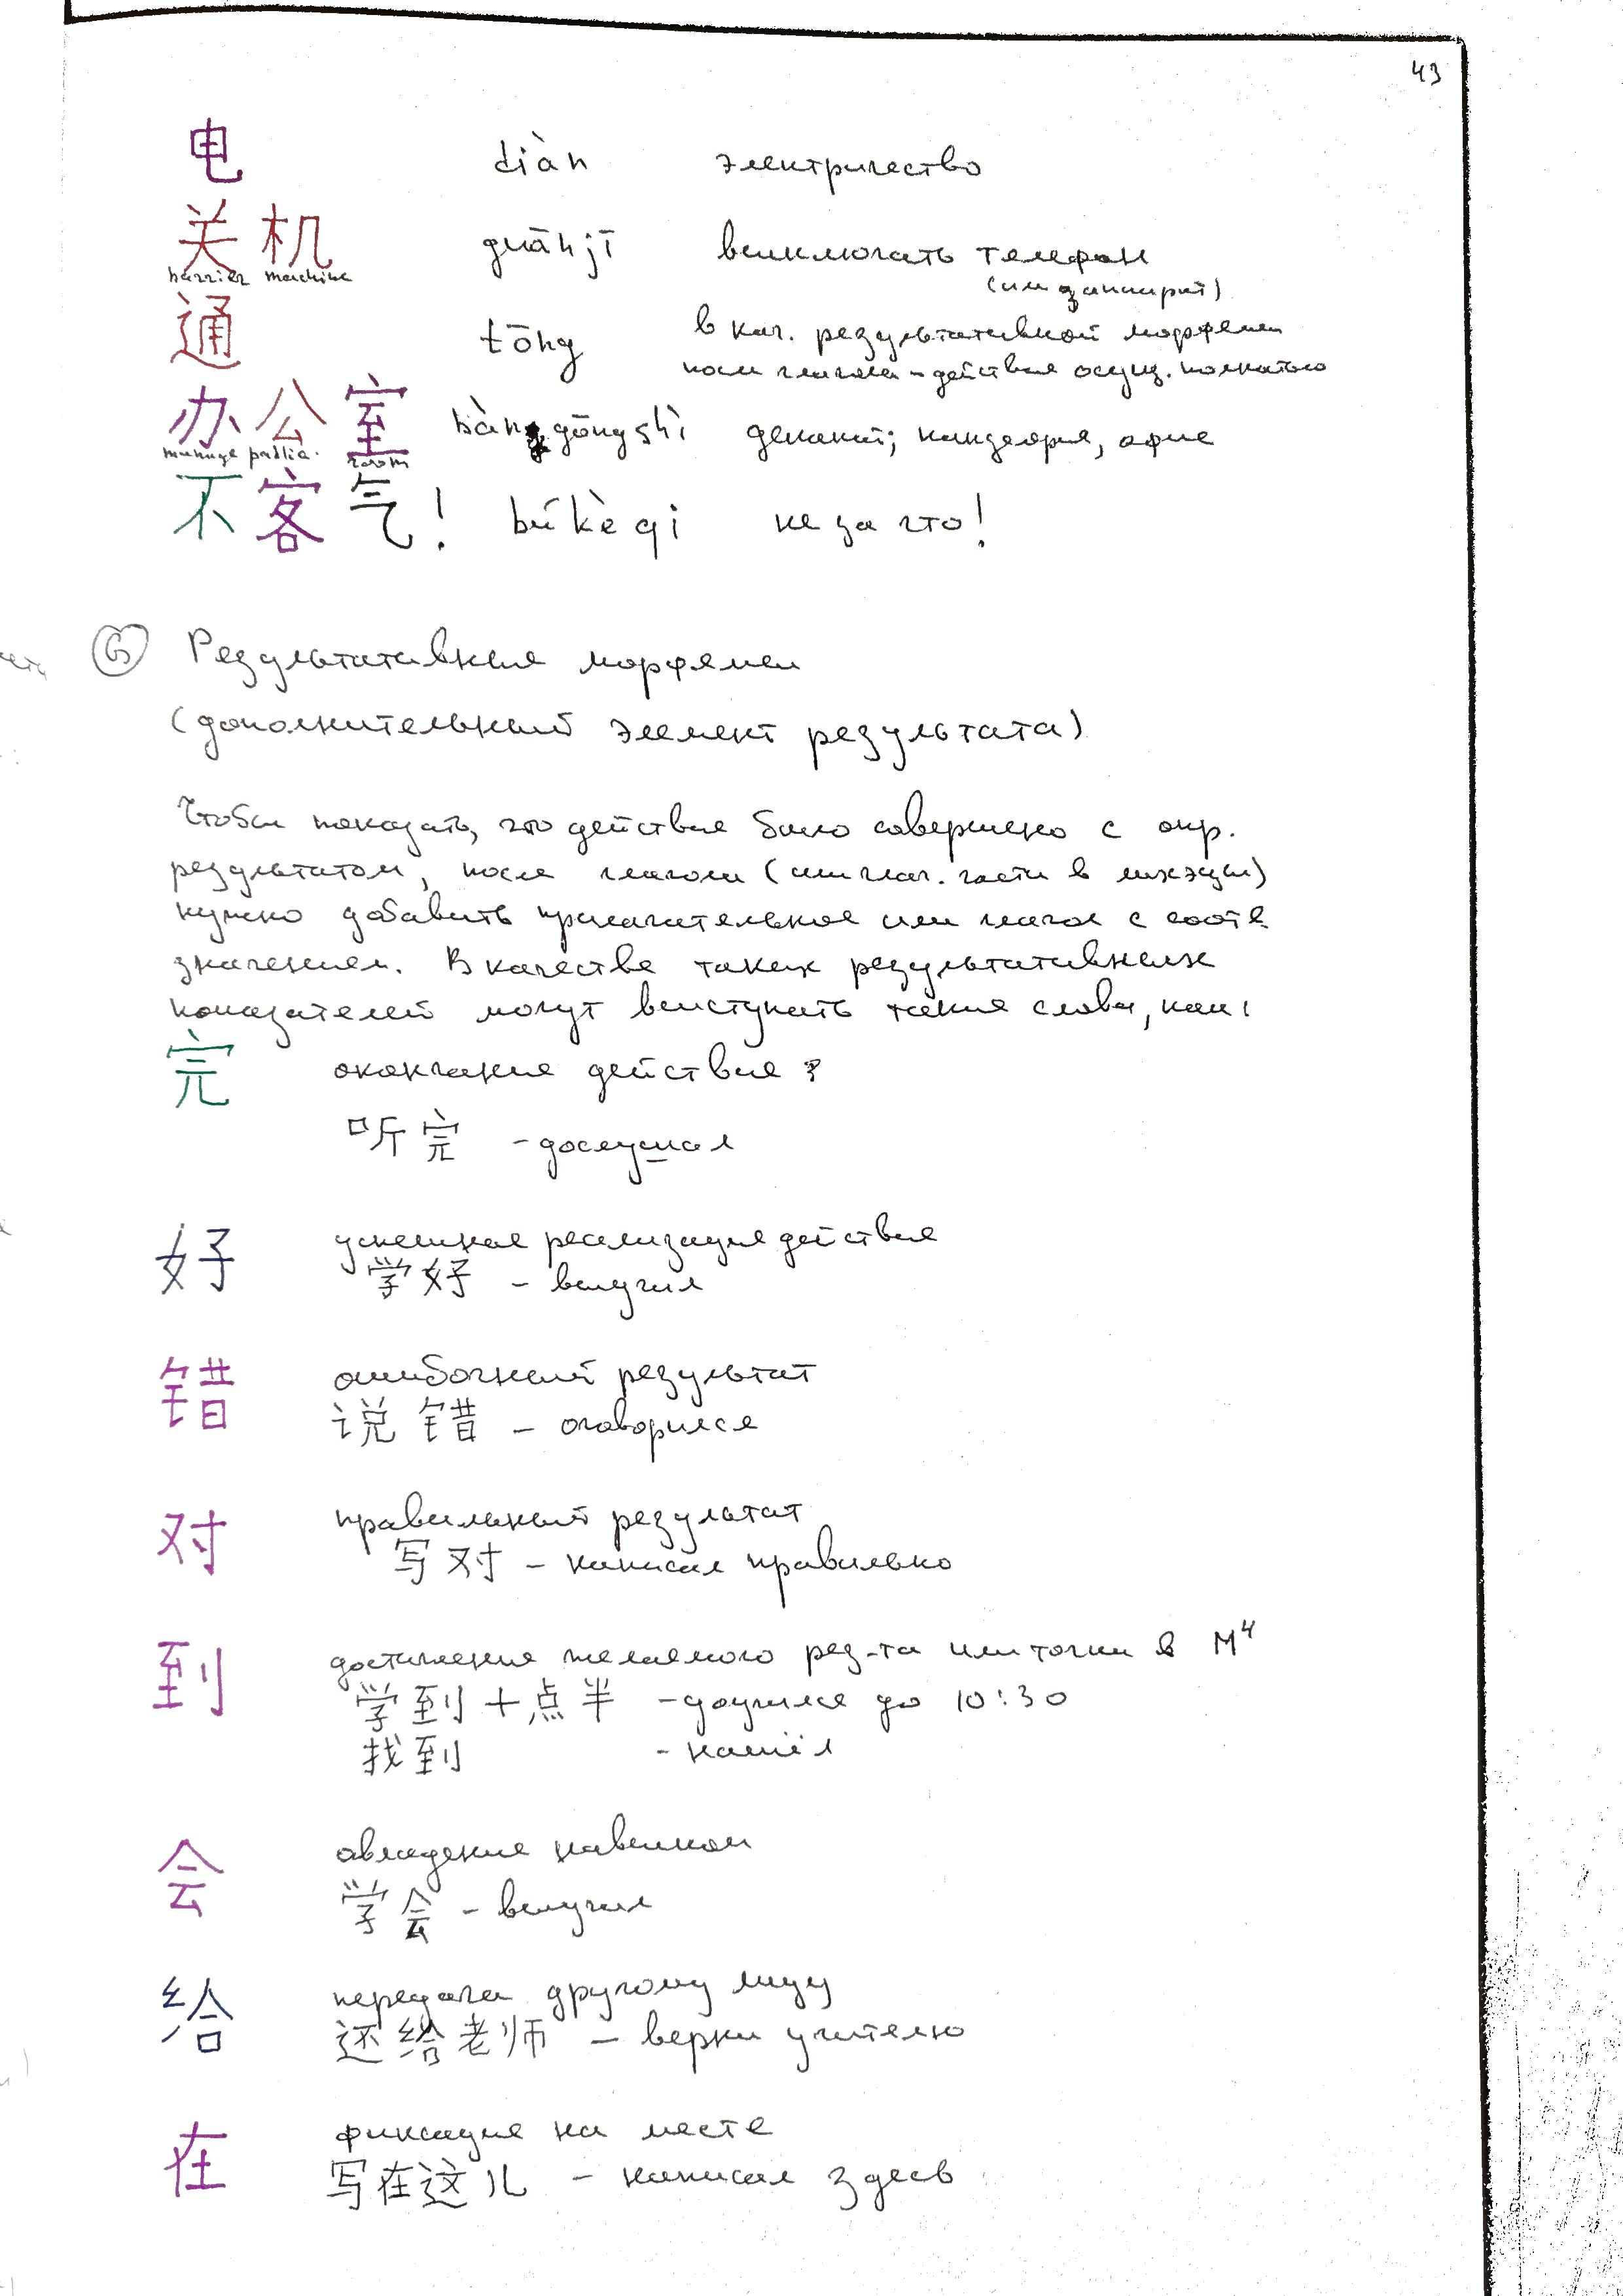 43
电 diàn электричество
关机 guānjī выключать телефон
barrier machine (или аппарат)
通 tōng в кач. результативной морфемы
после глагола – действие осущ. полностью
办公室 bàngōngshì деканат; канцелярия, офис
manage public. room
不客气! búkèqi не за что!
⑥ Результативные морфемы
(дополнительный элемент результата)
Чтобы показать, что действие было совершено с опр.
результатом, после глагола (или глаг. части в лихэцы)
нужно добавить прилагательное или глагол с соотв.
значением. В качестве таких результативных
показателей могут выступать такие слова, как:
完 окончание действия
听完 – дослушал
好 успешная реализация действия
学好 – выучил
错 ошибочный результат
说错 – оговорился
对 правильный результат
写对 – написал правильно
到 достижение желаемого рез-та или точки в
学到十点半 – доучился до 10:30
找到 – нашёл
会 овладение навыком
学会 – выучил
给 передача другому лицу
还给老师 – верни учителю
在 фиксация на месте
写在这儿 – написал здесь